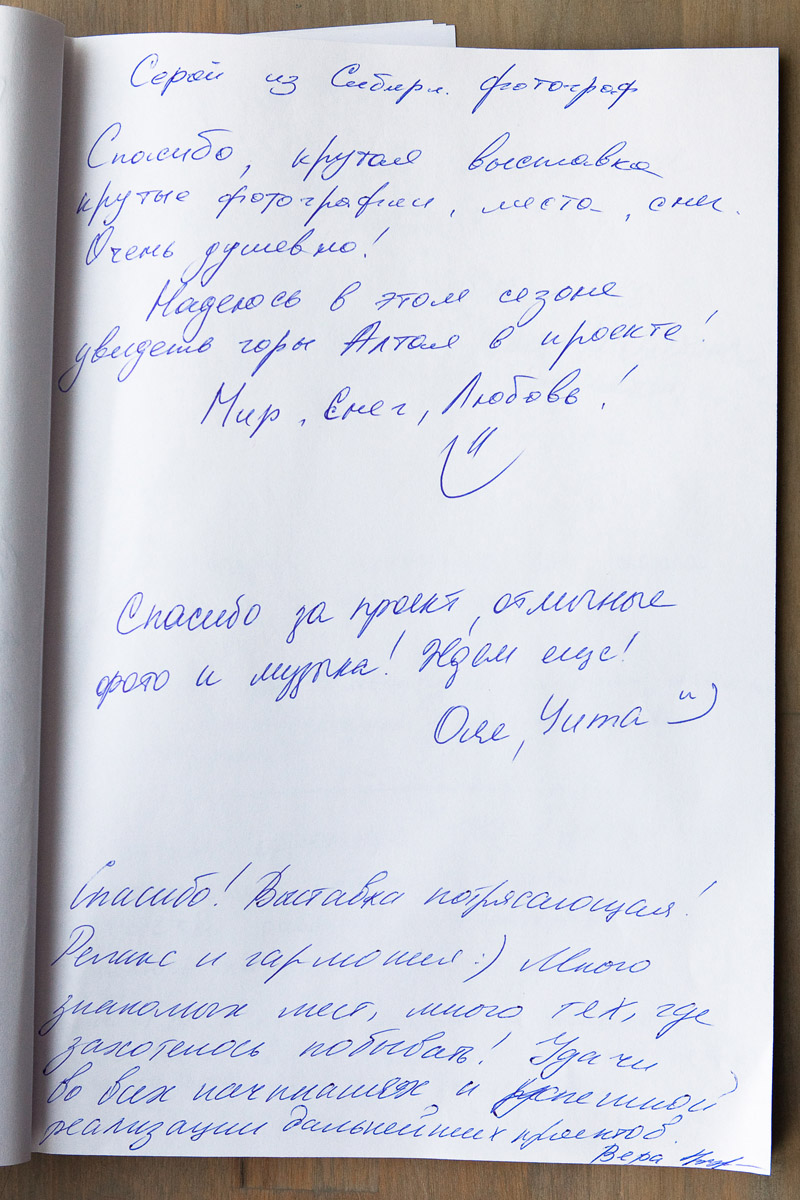 Серый из Сибири. фотограф
Спасибо, крутая выставка
крутые фотографии, места, снег.
Очень душевно!
Надеюсь в этом сезоне
увидеть горы Алтая в проекте!
Мир, Снег, Любовь!
Спасибо за проект, отличные
фото и музыка! Ждём еще!
Оля, Чита
Спасибо! Выставка потрясающая!
Релакс и гармония :) Много
знакомых мест, много тех, где
захотелось побывать! Удачи
во всех начинаниях и успешной
реализации дальнейших проектов.
Вера